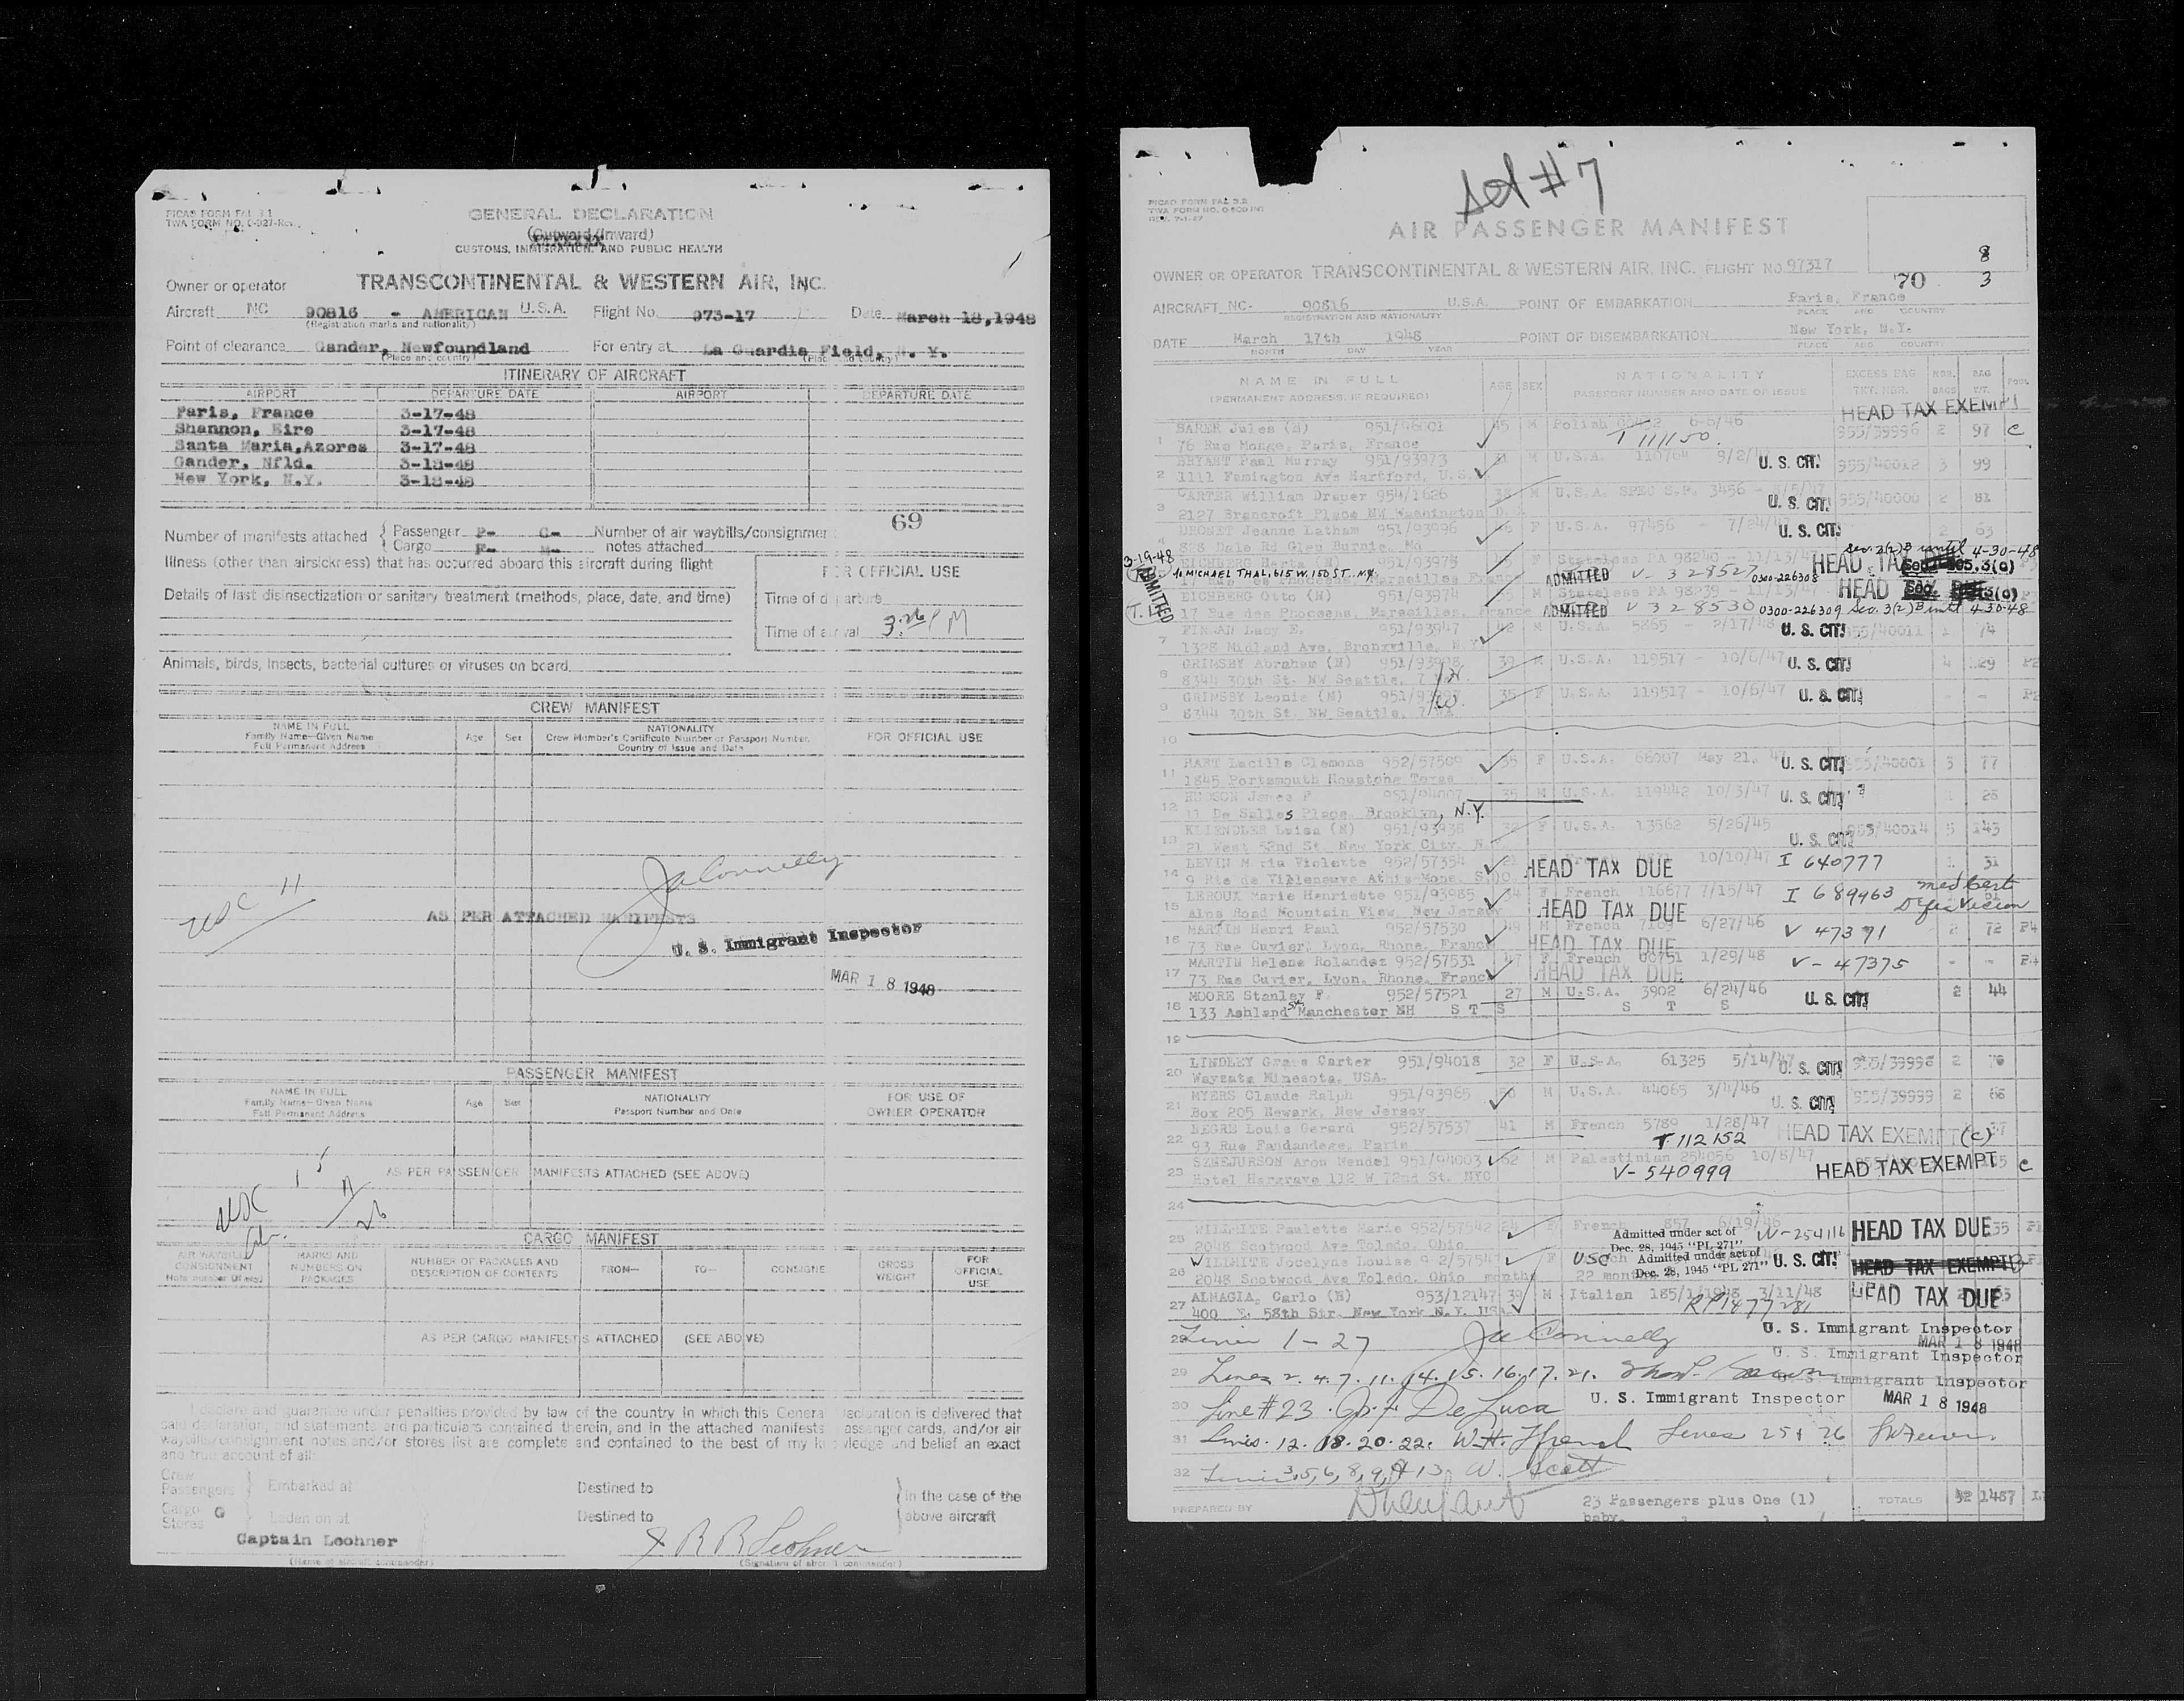 PICAO FORM FAL 3.1
TWA FORM NO. O-927-Rev.
GENERAL DECLARATION
(Outward/Inward)
CUSTOMS, IMMIGRATION, AND PUBLIC HEALTH
Owner or operator TRANSCONTINENTAL & WESTERN AIR, INC.
Aircraft NC 90816 - AMERICAN U.S.A. Flight No. 973-17 Date March 18, 1948
(Registration marks and nationality)
Point of clearance Gander, Newfoundland For entry at La Guardia Field, N. Y.
(Place and country) (Place and country)
ITINERARY OF AIRCRAFT
AIRPORT DEPARTURE DATE AIRPORT DEPARTURE DATE
Paris, France 3-17-48
Shannon, Eire 3-17-48
Santa Maria,Azores 3-17-48
Gander, Nfld. 3-18-48
New York, N.Y. 3-18-48
69
Number of manifests attached { Passenger P- C- Number of air waybills/consignment
Cargo F- M- notes attached
Illness (other than airsickness) that has occurred aboard this aircraft during flight
FOR OFFICIAL USE
Details of last disinsectization or sanitary treatment (methods, place, date, and time)
Time of departure
Time of arrival 3:26 P M
Animals, birds, insects, bacterial cultures or viruses on board
CREW MANIFEST
NAME IN FULL
Family Name—Given Name
Full Permanent Address
Age Sex
NATIONALITY
Crew Member's Certificate Number or Passport Number,
Country of Issue and Date
FOR OFFICIAL USE
USC 11
J A Connelly
AS PER ATTACHED MANIFESTS
U. S. Immigrant Inspector
MAR 18 1948
PASSENGER MANIFEST
NAME IN FULL
Family Name—Given Name
Full Permanent Address
Age Sex
NATIONALITY
Passport Number and Date
FOR USE OF
OWNER OPERATOR
AS PER PASSENGER MANIFESTS ATTACHED (SEE ABOVE)
USC 15
11
26
CARGO MANIFEST
AIR WAYBILL
CONSIGNMENT
Note number (if any)
MARKS AND
NUMBERS ON
PACKAGES
NUMBER OF PACKAGES AND
DESCRIPTION OF CONTENTS
FROM— TO— CONSIGNE
GROSS
WEIGHT
FOR
OFFICIAL
USE
AS PER CARGO MANIFESTS ATTACHED (SEE ABOVE)
I declare and guarantee under penalties provided by law of the country in which this General declaration is delivered that
said declaration, and statements and particulars contained therein, and in the attached manifests passenger cards, and/or air
waybills/consignment notes and/or stores list are complete and contained to the best of my knowledge and belief an exact
and true account of all:
Crew
Passengers } Embarked at Destined to
Cargo
Stores } Laden on at Destined to
} in the case of the
above aircraft
Captain Loohner
(Name of aircraft commander)
X R R Lochner
(Signature of aircraft commander)
Set #7
PICAO FORM FAL 3.2
TWA FORM NO. O-800 INT
REV. 7-1-47
AIR PASSENGER MANIFEST
8
3
70
OWNER OR OPERATOR TRANSCONTINENTAL & WESTERN AIR, INC. FLIGHT NO. 97317
AIRCRAFT NC- 90816 U.S.A. POINT OF EMBARKATION Paris, France
REGISTRATION AND NATIONALITY PLACE AND COUNTRY
DATE March 17th 1948 POINT OF DISEMBARKATION New York, N.Y.
MONTH DAY YEAR PLACE AND COUNTRY
NAME IN FULL
(PERMANENT ADDRESS, IF REQUIRED)
AGE SEX
NATIONALITY
PASSPORT NUMBER AND DATE OF ISSUE
EXCESS BAG
TKT. NBR.
NBR.
BAGS
BAG
WT.
POOL
HEAD TAX EXEMPT
1 BARER Jules (N) 951/96001 45 M Polish 6-6/46 955/39996 2 97 C
76 Rue Monge, Paris, France T 111150.
2 BRYANT Paul Murray 951/93973 M U.S.A. 110764 9/2/47 U. S. CIT. 955/40012 3 99
1111 Famington Ave Hartford, U.S.A.
3 CARTER William Draper 954/1626 38 M U.S.A. SPEC S.P. 3456 U. S. CIT. 955/40000 2 81
2127 Brancroft Place NW Washington D.C.
4 DRONET Jeanne Latham 951/93996 46 F U.S.A. 97456 - 7/24/47 U. S. CIT. 2 63
828 Dale Rd Glen Burnie, Md
3-19-48 ADMITTED T.
EICHBERG Herta (N) 951/93975 F Stateless PA 98240 - 11/13/47 HEAD TAX Sec. 3(2)B until 4-30-48
℅ MICHAEL THAL, 615 W. 150 ST. N.Y. Marseilles France ADMITTED V-328527 0300-226308
EICHBERG Otto (N) 951/93974 M Stateless PA 98239 - 11/13/47 HEAD
17 Rue des Phocoens, Marseilles, France ADMITTED V 328530 0300-226309 Sec. 3(2)B until 4-30-48
7 Lucy E. 951/93947 42 M U.S.A. 5865 - 2/17/48 U. S. CIT. 955/40011 1 74
1328 Midland Ave. Bronxville, N.Y.
8 GRIMSBY Abraham (N) 951/93998 39 M U.S.A. 119517 - 10/6/47 U. S. CIT. 4 29 P2
8344 30th St. NW Seattle, 7 W
9 GRIMSBY Leonie (N) 951/93997 35 F U.S.A. 119517 - 10/6/47 U. S. CIT. - - P2
8344 30th St. NW Seattle, 7 W.
10
11 HART Lucille Clemons 952/57509 35 F U.S.A. 66007 May 21, 47 U. S. CIT. 955/40001 3 77
1845 Portsmouth Houstong Texas
12 HUDSON James F 951/94007 35 M U.S.A. 119442 10/3/47 U. S. CIT. 28
11 De Salles Place, Brooklyn, N.Y.
13 KLIENDLER Luisa (N) 951/93938 F U.S.A. 13562 5/26/45 U. S. CIT. 955/40014 5 143
21 West 52nd St. New York City, N.
14 LEVIN Maria Violette 952/57354 HEAD TAX DUE 10/10/47 I 640777 1 31
9 Rte de Villeneuve Athis-Mons. S.&O.
15 LEROUX Marie Henriette 951/93985 34 F French 116677 7/15/47 I 689963 med cert
Alps Road Mountain View, New Jersey HEAD TAX DUE Defec vision
16 MARTIN Henri Paul 952/57530 49 M French 7109 6/27/46 V 47391 2 72 P4
73 Rue Cuvier, Lyon, Rhone, France HEAD TAX DUE
17 MARTIN Helene Rolandez 952/57531 47 F French 00751 1/29/48 V-47375 - - P4
73 Rue Cuvier, Lyon. Rhone, France HEAD TAX DUE
18 MOORE Stanley F. 952/57521 27 M U.S.A. 3902 6/24/46 U. S. CIT. 2 44
133 Ashland St Manchester NH S T S S T S
19
20 LINDLEY Grace Carter 951/94018 32 F U.S.A. 61325 5/14/47 U. S. CIT. 955/39998 2 70
Wayzata Minesota, USA.
21 MYERS Claude Ralph 951/93965 50 M U.S.A. 44065 3/4/46 U. S. CIT. 955/39999 2 68
Box 205 Newark, New Jersey
22 NEGRE Louis Gerard 952/57537 41 M French 5789 1/28/47 HEAD TAX EXEMPT (c)
93 Rue Fandandege, Paris T.112152
23 SZEEJURSON Aron Mendel 951/94003 62 M Palestinian 254056 10/8/47 HEAD TAX EXEMPT c
Hotel Hargrave 112 W 72nd St. NYC V-540999
24
25 WILLHITE Paulette Marie 952/57542 24 F French 857 6/19/46 V-254116 HEAD TAX DUE 35
2048 Scotwood Ave Toledo, Ohio Admitted under act of Dec. 28, 1945 "PL 271"
26 WILLHITE Jocelyne Louise F USC Admitted under act of Dec. 28, 1945 "PL 271" U. S. CIT. HEAD TAX EXEMPT
2048 Scotwood Ave Toledo, Ohio months 22 months
27 ALMAGIA, Carlo (N) 953/12147 39 M Italian 185/1/1948 3/11/48 HEAD TAX DUE
400 E. 58th Str. New York N.Y. USA RP1477281
28 Lines 1-27 J A Connelly U. S. Immigrant Inspector
MAR 18 1948
U. S. Immigrant Inspector
29 Lines 2. 4. 7. 11. 14. 15. 16. 17. 21. U. S. Immigrant Inspector
30 Line #23 De Luca U. S. Immigrant Inspector MAR 18 1948
31 Lines. 12. 18. 20. 22. W.H. Lines 25 & 26
32 Lines 3, 5, 6, 8, 9, 13 W. Scott
PREPARED BY 23 Passengers plus One (1) baby. TOTALS 32 1487